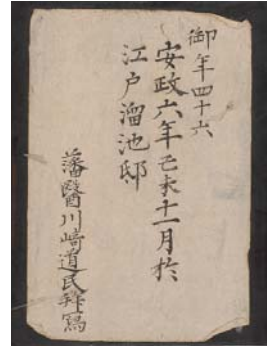 御年四十六
安政六年己未十一月於
江戸溜池邸
藩醫川崎道民拜寫